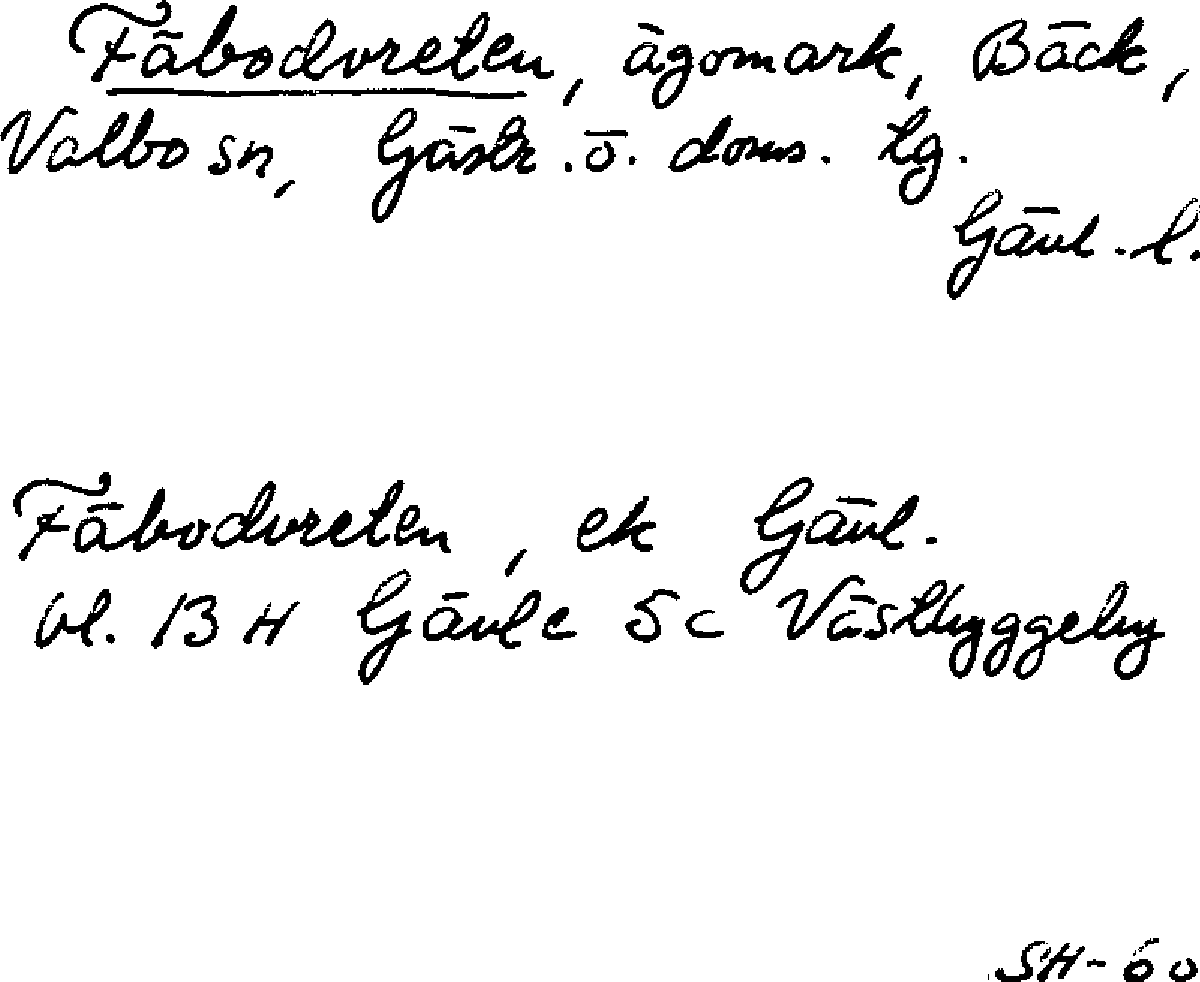 Fäbodvreten, ägomark, Bäck,
Valbo sn, Gästr. ö. doms. tg.
Gävl. l.
Fäbodvreten, ek Gävl.
bl. 13 H Gävle 5c Västbyggeby
SH-60